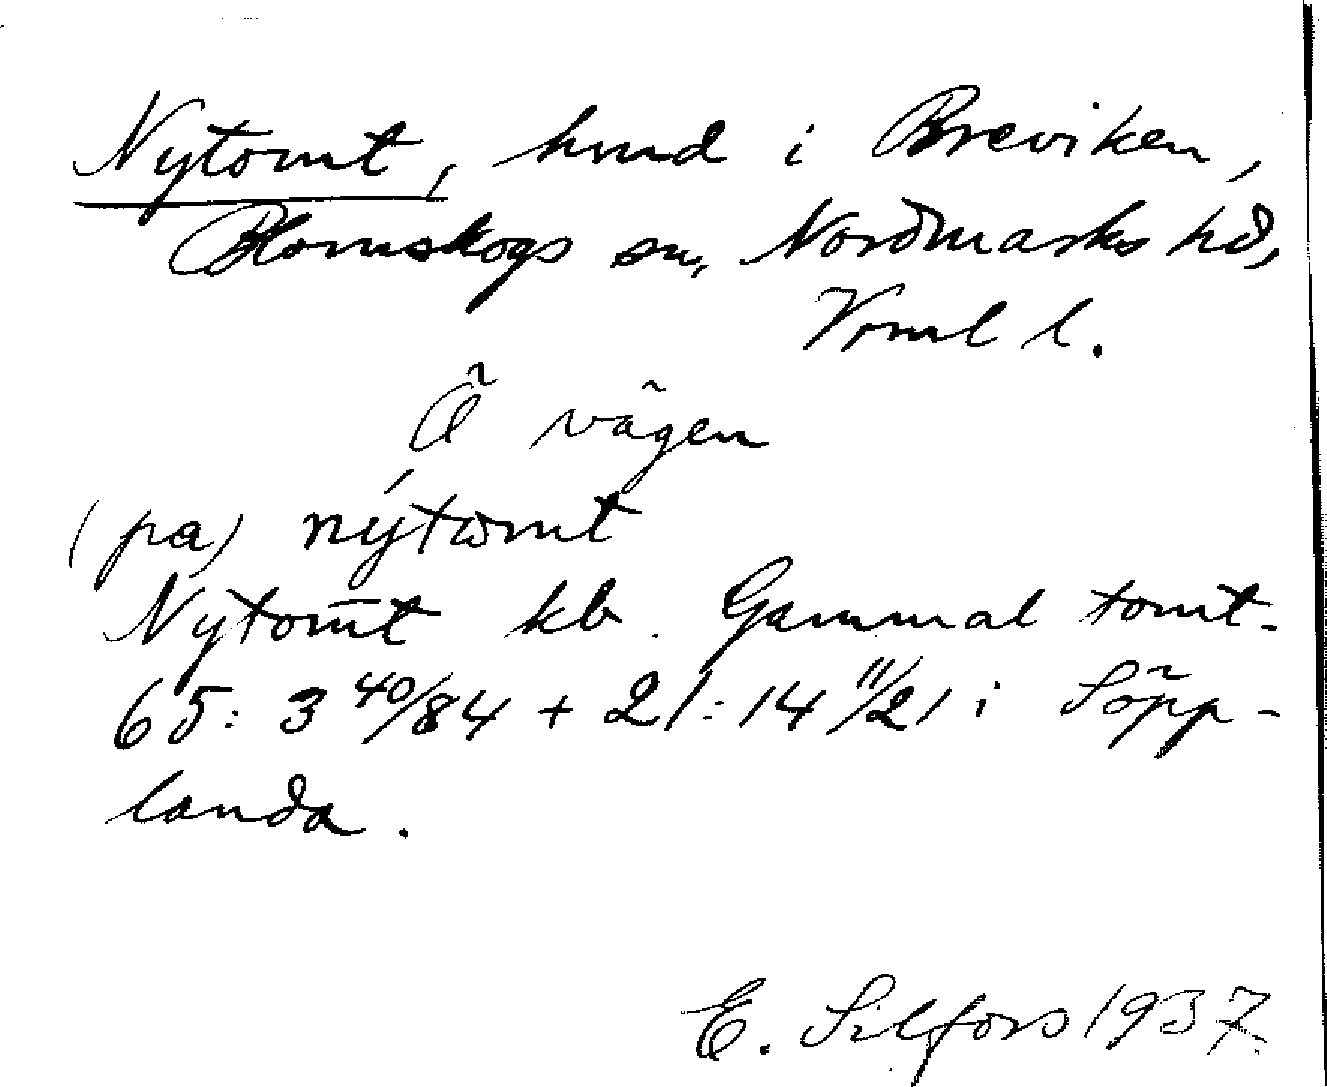 Nytomt, hmd i Breviken,
Blomskogs sn, Nordmarks hd,
Vrml l.
Å vägen
(pa) nýtomt
Nytomt kb. Gammal tomt.
65:3 40/84 + 21:14 11/21 i Söpp-
landa.
E. Silfors 1937